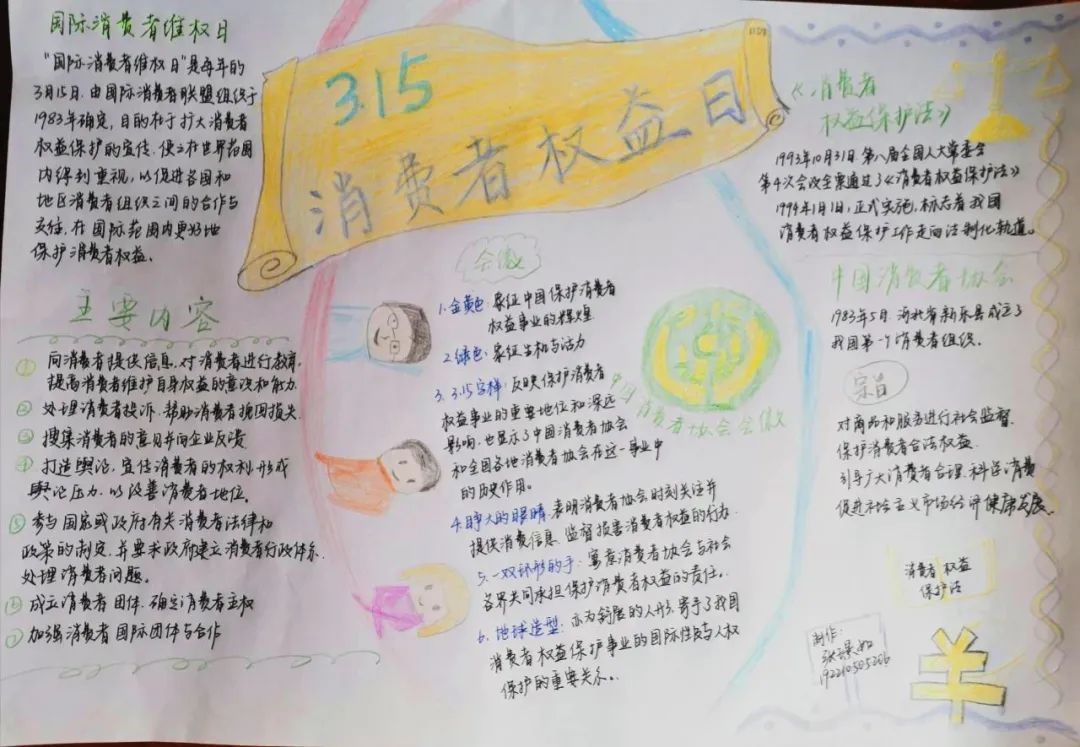 国际消费者维权日
"国际消费者维权日"是每年的
3月15日.由国际消费者联盟组织于
1983年确定,目的在于扩大消费者
权益保护的宣传,使之在世界范围
内得到重视,以促进各国和
地区消费者组织之间的合作与
交往,在国际范围内更好地
保护消费者权益。
3.15
消费者权益日
《消费者
权益保护法》
1993年10月31日.第八届全国人大常委会
第4次会议全票通过了《消费者权益保护法》
1994年1月1日,正式实施,标志着我国
消费者权益保护工作走向法制化轨道。
主要内容
① 向消费者提供信息,对消费者进行教育,
提高消费者维护自身权益的意识和能力.
② 处理消费者投诉,帮助消费者挽回损失.
③ 搜集消费者的意见并向企业反馈
④ 打造舆论,宣传消费者的权利,形成
舆论压力,以改善消费者地位。
⑤ 参与国家或政府有关消费者法律和
政策的制定,并要求政府建立消费者行政体系,
处理消费者问题。
成立消费者团体,确立消费者主权
加强消费者国际团体与合作
会徽
1.金黄色:象征中国保护消费者
权益事业的辉煌
2.绿色:象征生机与活力
3. 3.15字样:反映保护消费者
权益事业的重要地位和深远
影响,也显示了中国消费者协会
和全国各地消费者协会在这一事业中
的历史作用。
4.睁大的眼睛,表明消费者协会时刻关注并
提供消费信息,监督损害消费者权益的行为.
5.一双环形的手:寓意消费者协会与社会
各界共同承担保护消费者权益的责任。
6.地球造型:亦为舒展的人形,寄予了我国
消费者权益保护事业的国际性及与人权
保护的重要关系。
中国消费者协会会徽
中国消费者协会
1983年5月,河北省新乐县成立了
我国第一个消费者组织。
宗旨
对商品和服务进行社会监督,
保护消费者合法权益,
引导广大消费者合理、科学消费
促进社会主义市场经济健康发展。
消费者权益
保护法
制作:
19221050520b